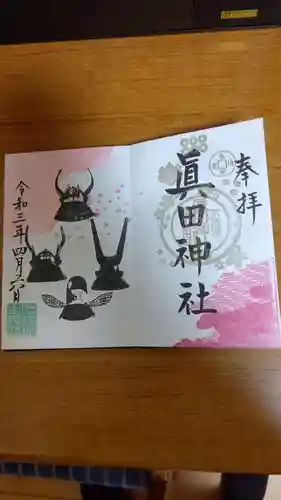 奉拝
眞田神社
令和三年四月六日